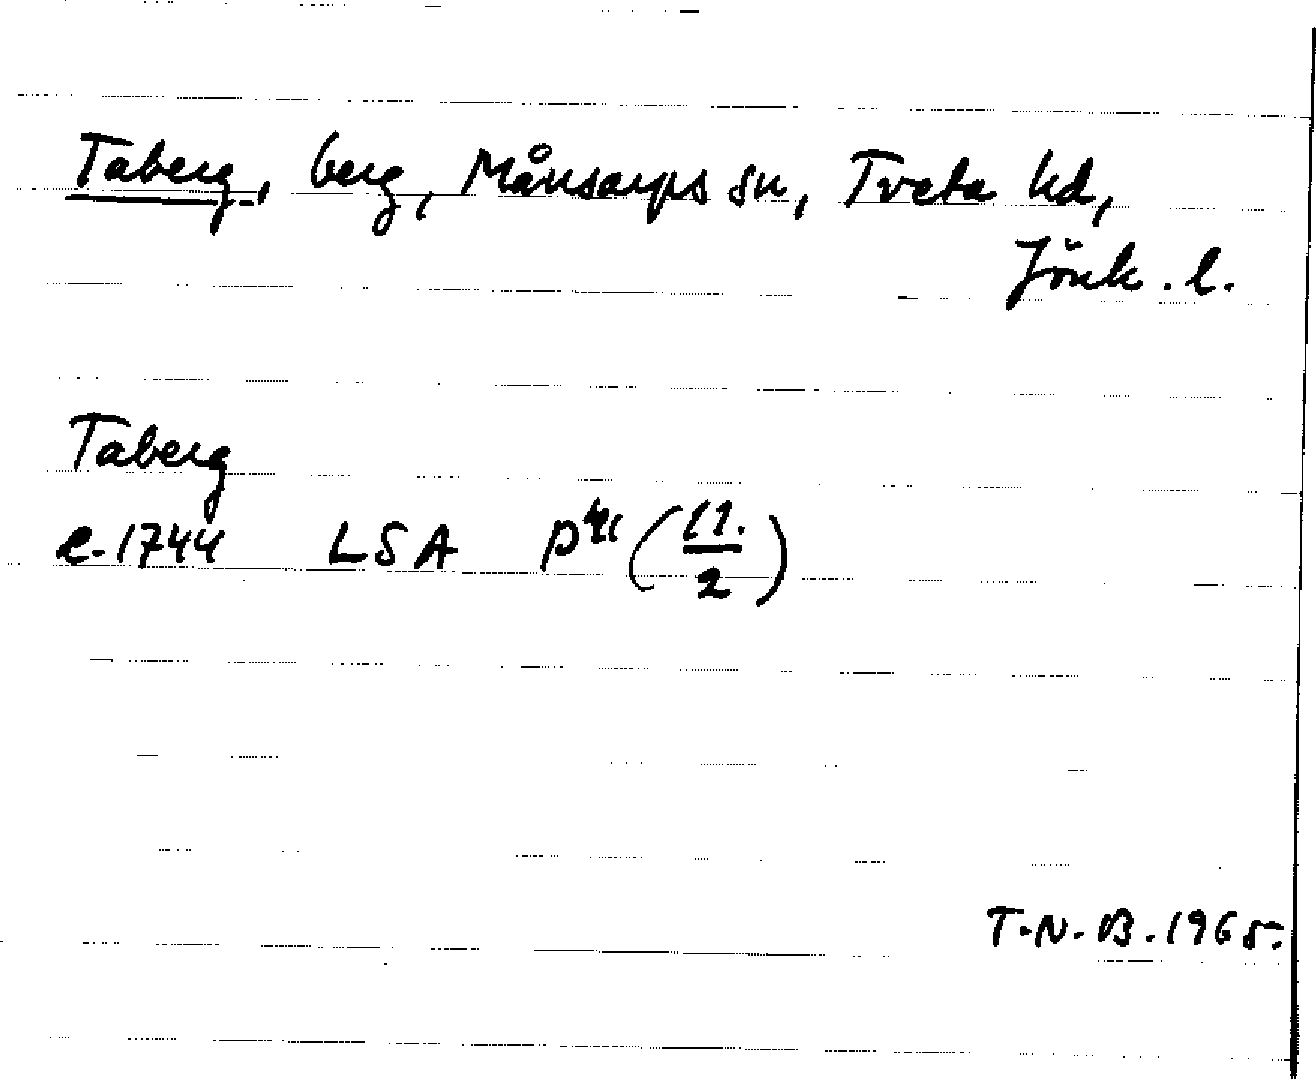 Taberg, berg, Månsarps sn, Tveta hd,
Jönk. l.
Taberg
e. 1744 LSA P 41 (11./2)
T.N.B. 1965.